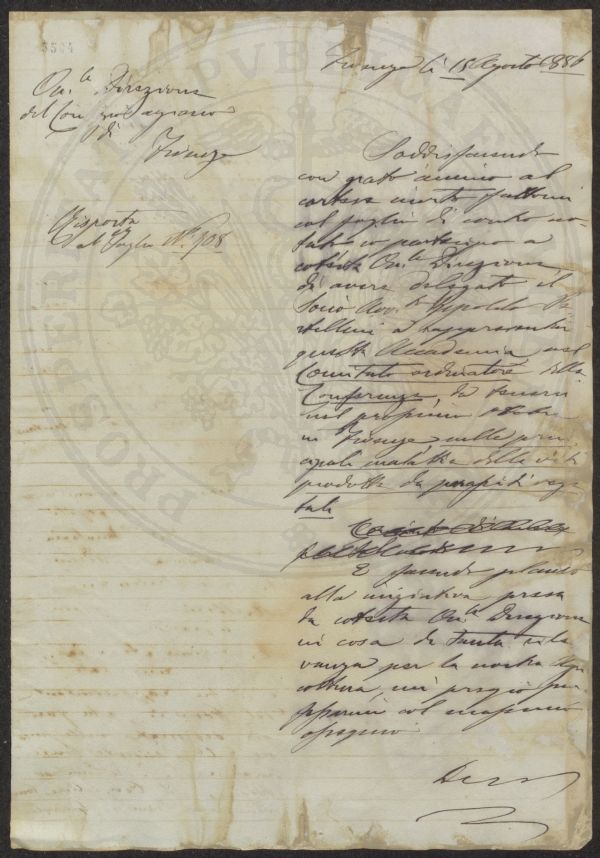 3504
Firenze lì 18 Agosto 1886
On.le Direzione
del Comizio agrario
di
Firenze
Risposta
al Foglio N.° 708
Soddisfacendo
con grato animo al
cortese invito fattomi
col foglio di contro no-
tato io partecipo a
cotesta On.le Direzione
di avere delegato il
Socio Avv.to Ippolito
a rappresentare
questa Accademia nel
Comitato ordinatore della
Conferenza, da tenersi
nel prossimo
in Firenze sulle prin
cipali malattie delle viti
prodotte da parassiti vege
tali
E facendo plauso
alla iniziativa presa
da cotesta On.le Direzione
in cosa di tanta rile
vanza per la nostra Agri
coltura, mi pregio
col massimo
ossequio